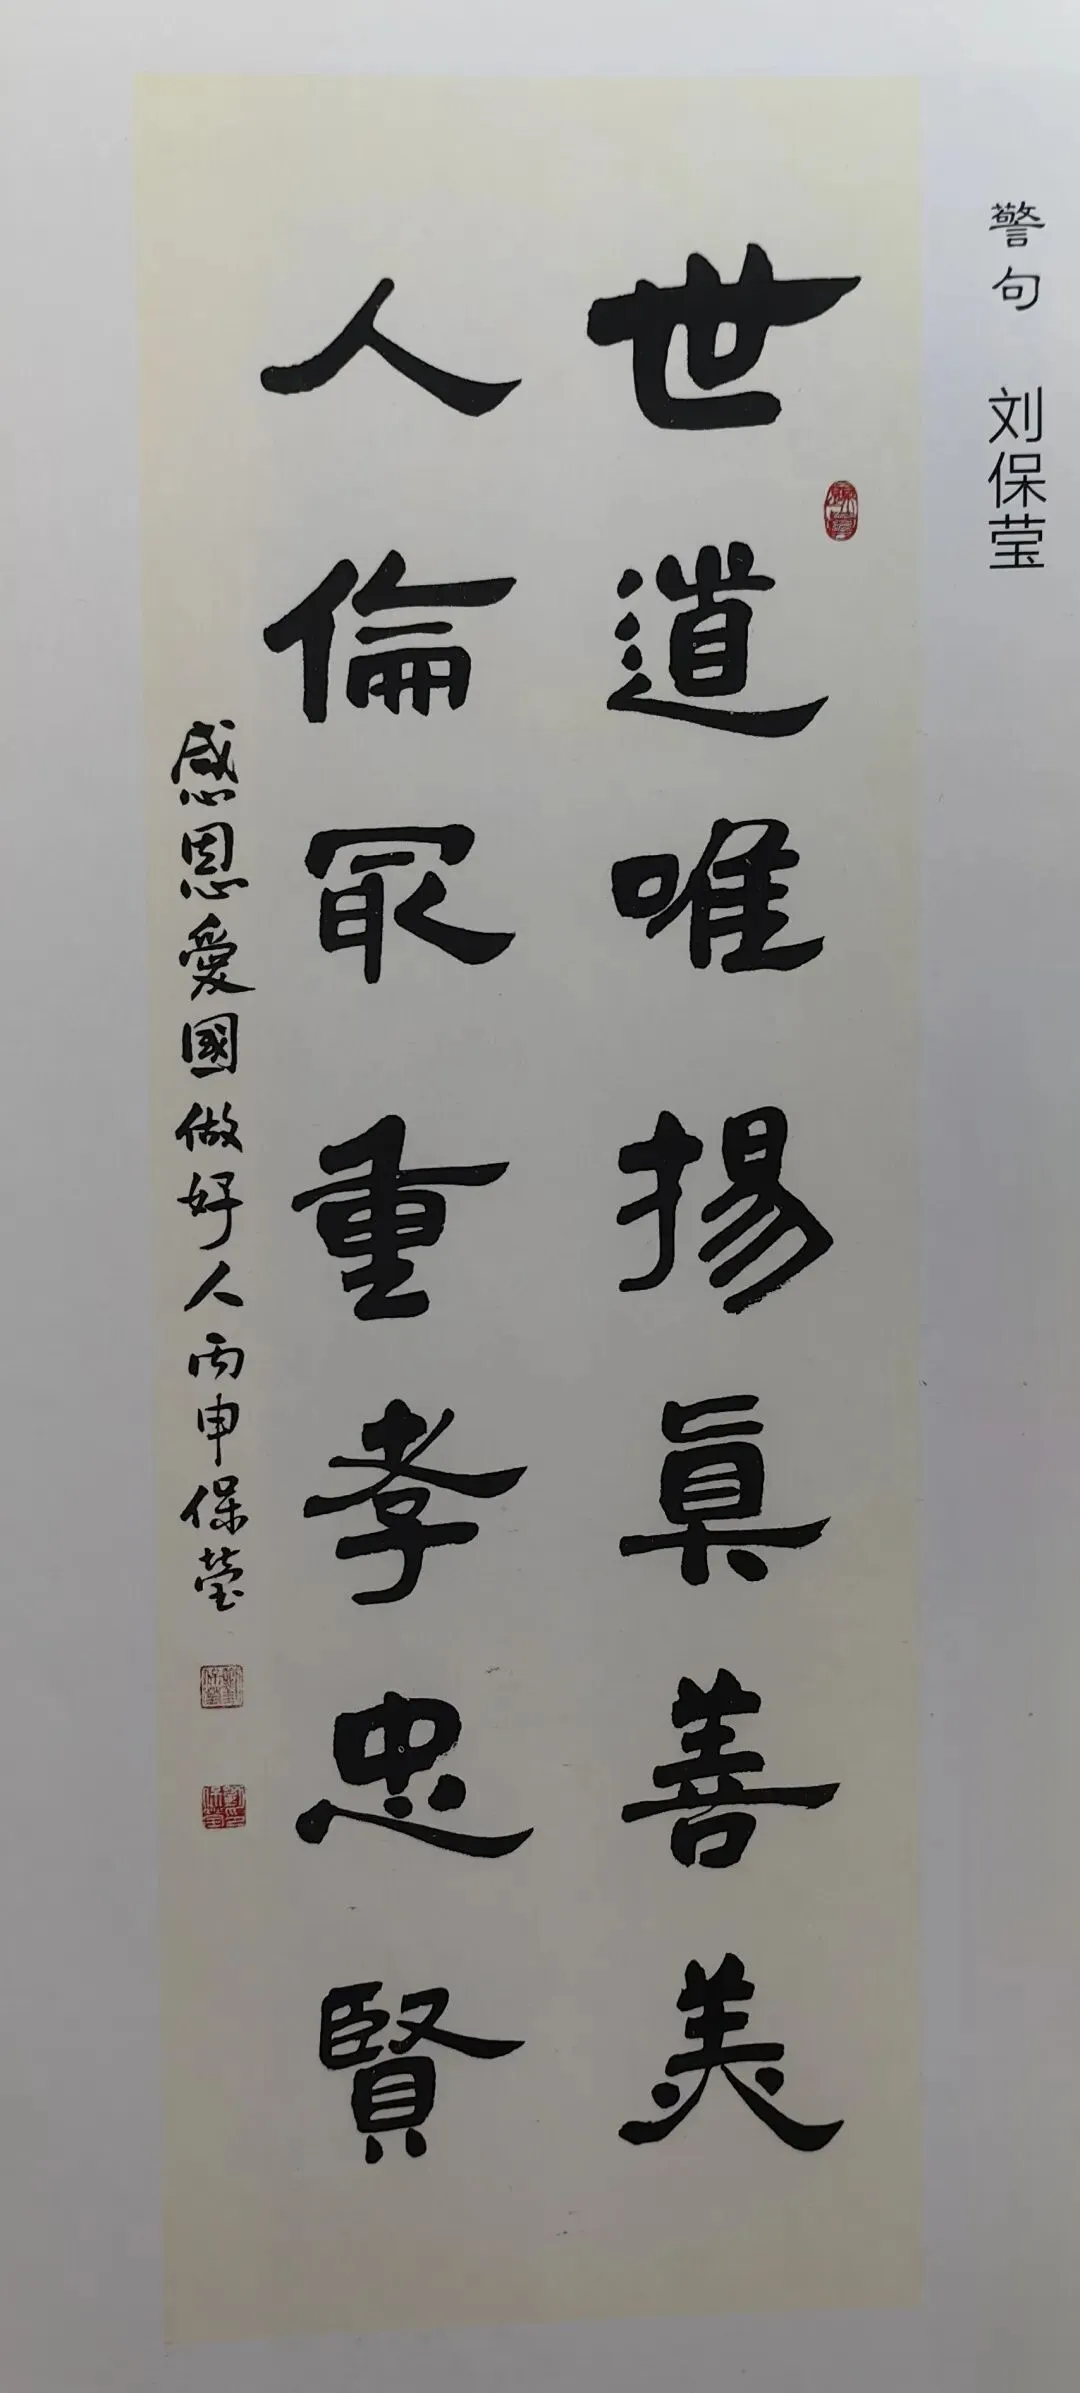 警句 刘保莹
世道唯揚真善美
人倫冣重孝忠賢
感恩愛國做好人丙申保瑩